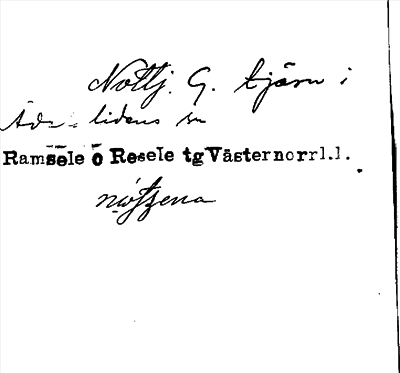 Nottj. G. tjärn i
Åds- lidens sn
Ramsele o Resele tg Västernorrl.l.